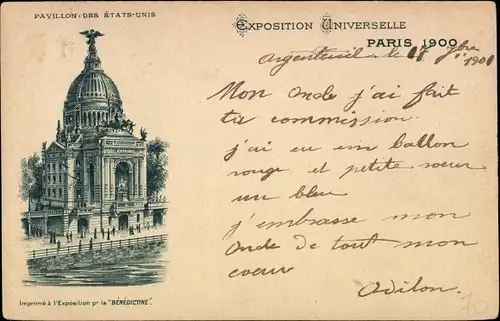 PAVILLON-DES ÉTATS-UNIS
EXPOSITION UNIVERSELLE
PARIS 1900
Argenteuil le 17 9bre 1900
Mon Oncle j'ai fait
ta commission.
j'ai eu um ballon
rouge et petite sœur
un bleu
j'embrasse mon
Oncle de tout mon
coeur
Odilon.
Imprimé à l'Exposition pr la "BÉNÉDICTINE".